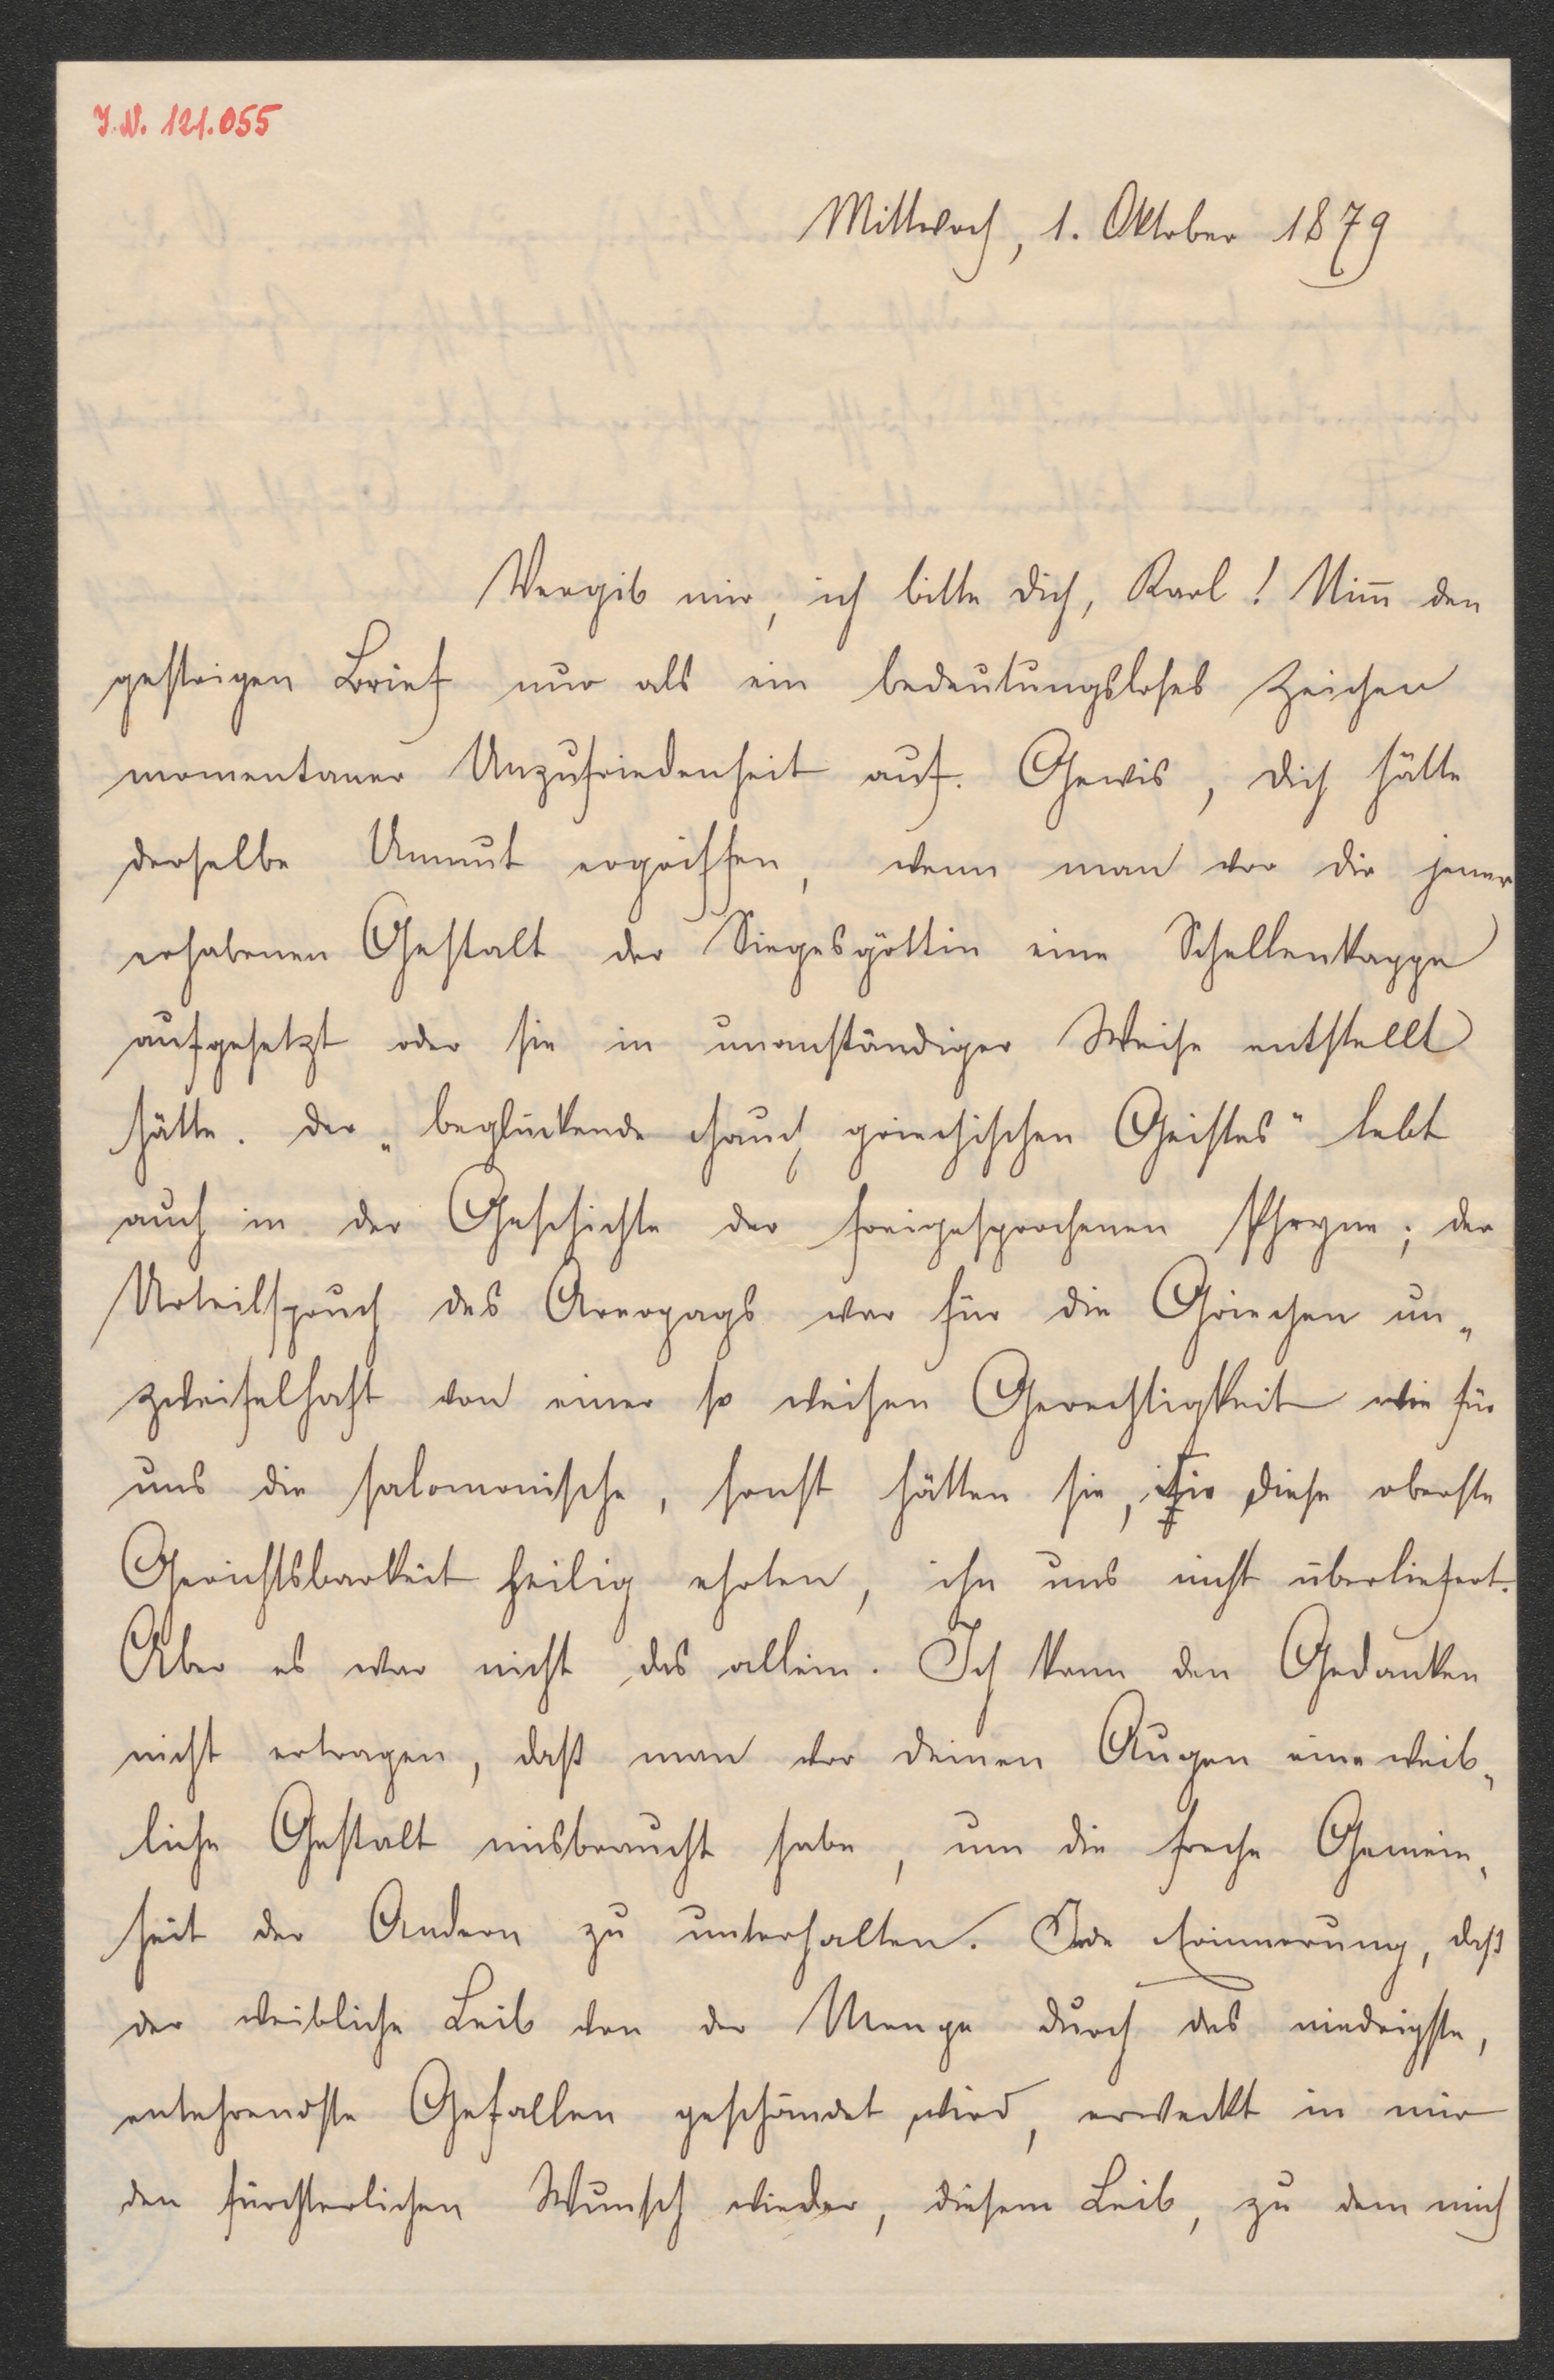 J.N. 121.055
Mittwoch, 1. Oktober 1879
Vergib mir, ich bitte dich, Karl! Nim̅ den
gestrigen Brief nur als ein bedeutungsloses Zeichen
momentaner Unzufriedenheit auf. Gewis, dich hätte
derselbe Unmut ergriffen, wenn man vor dir jener
erhabenen Gestalt der Siegesgöttin eine Schellenkappe
aufgesetzt oder sie in unanständiger Weise entstellt
hätte. Der „beglückende Hauch griechischen Geistes" lebt
auch in der Geschichte der freigesprochenen Phryne; der
Urteilspruch des Areopags war für die Griechen un„
zweifelhaft von einer so weisen Gerechtigkeit wie für
uns die salomonische, sonst hätten sie, die diese oberste
Gerichtsbarkeit heilig ehrten, ihn uns nicht überliefert.
Aber es war nicht das allein. Ich kann den Gedanken
nicht ertragen, daß man vor deinen Augen eine weib„
liche Gestalt misbraucht habe, um die freche Gemein„
heit der Andern zu unterhalten. Jede Erinnerung, daß
der weibliche Leib von der Menge durch das niedrigste,
entehrendste Gefallen geschändet wird, erweckt in mir
den fürchterlichen Wunsch wieder, diesem Leib, zu dem mich